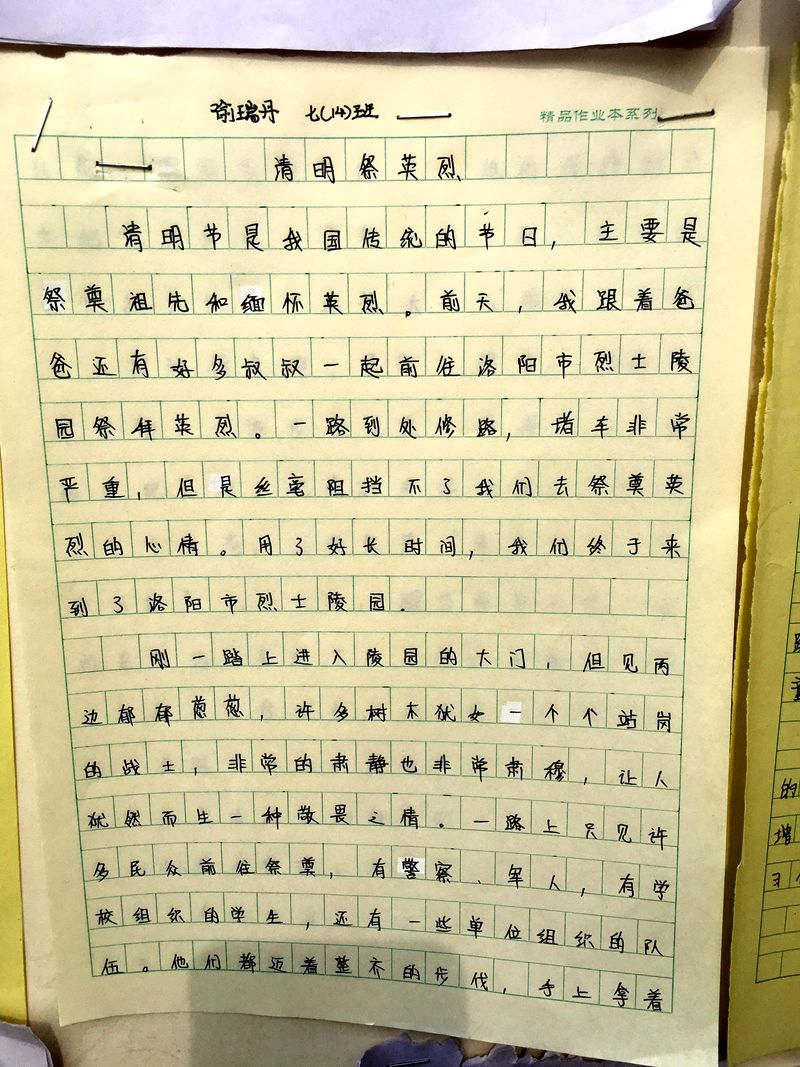 瑜瑞丹 七(14)班
精品作业本系列
清明祭英烈
清明节是我国传统的节日，主要是
祭奠祖先和缅怀英烈。前天，我跟着爸
爸还有好多叔叔一起前往洛阳市烈士陵
园祭拜英烈。一路到处修路，堵车非常
严重，但是丝毫阻挡不了我们去祭奠英
烈的心情。用了好长时间，我们终于来
到了洛阳市烈士陵园.
刚一踏上进入陵园的大门，但见两
边郁郁葱葱，许多树木犹如一个个站岗
的战士，非常的肃静也非常肃穆，让人
犹然而生一种敬畏之情。一路上只见许
多民众前往祭奠，有警察、军人，有学
校组织的学生，还有一些单位组织的队
伍。他们都迈着整齐的步伐，手上拿着
的
增